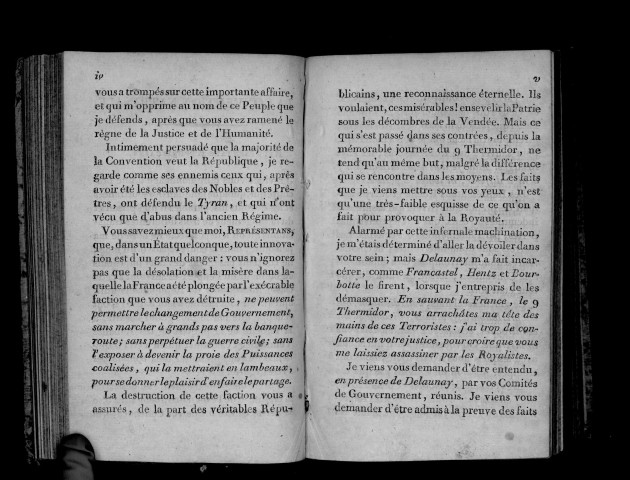 iv
vous a trompés sur cette importante affaire,
et qui m'opprime au nom de ce Peuple que
je défends, après que vous avez ramené le
règne de la Justice et de l'Humanité.
Intimement persuadé que la majorité de
la Convention veut la République, je re-
garde comme ses ennemis ceux qui, après
avoir été les esclaves des Nobles et des Prê-
tres, ont défendu le Tyran, et qui n'ont
vécu que d'abus dans l'ancien Régime.
Vous savez mieux que moi, REPRÉSENTANS,
que, dans un État quelconque, toute innova-
tion est d'un grand danger : vous n'ignorez
pas que la désolation et la misère dans la-
quelle la France a été plongée par l'exécrable
faction que vous avez détruite, ne peuvent
permettre le changement de Gouvernement,
sans marcher à grands pas vers la banque-
route; sans perpétuer la guerre civile; sans
l'exposer à devenir la proie des Puissances
coalisées, qui la mettraient en lambeaux,
pour se donner le plaisir d'en faire le partage.
La destruction de cette faction vous a
assurés, de la part des véritables Répu-
v
blicains, une reconnaissance éternelle. Ils
voulaient, ces misérables! ensevelir la Patrie
sous les décombres de la Vendée. Mais ce
qui s'est passé dans ses contrées, depuis la
mémorable journée du 9 Thermidor, ne
tend qu'au même but, malgré la différence
qui se rencontre dans les moyens. Les faits
que je viens mettre sous vos yeux, n'est
qu'une très-faible esquisse de ce qu'on a
fait pour provoquer à la Royauté.
Alarmé par cette infernale machination,
je m'étais déterminé d'aller la dévoiler dans
votre sein; mais Delaunay m'a fait incar-
cérer, comme Francastel, Hentz et Bour-
botte le firent, lorsque j'entrepris de les
démasquer. En sauvant la France, le 9
Thermidor, vous arrachâtes ma tête des
mains de ces Terroristes : j'ai trop de con-
fiance en votre justice, pour croire que vous
me laissiez assassiner par les Royalistes.
Je viens vous demander d'être entendu,
en présence de Delaunay, par vos Comités
de Gouvernement, réunis. Je viens vous
demander d'être admis à la preuve des faits